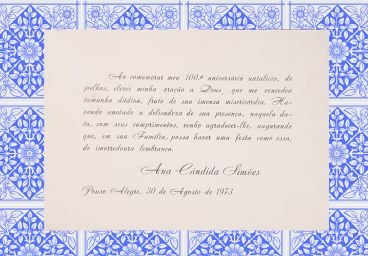 Ao comemorar meu 100º aniversário natalício, de
joelhos, elevei minha oração a Deus, que me concedeu
tamanha dádiva, fruto de sua imensa misericórdia. Ha-
vendo anotado a delicadeza de sua presença, naquela da-
ta, com seus cumprimentos, venho agradecer-lhe, augurando
que, em sua Família, possa haver uma festa como essa,
de imorredoura lembrança.
Ana Cândida Simões
Pouso Alegre, 30 de Agosto de 1973